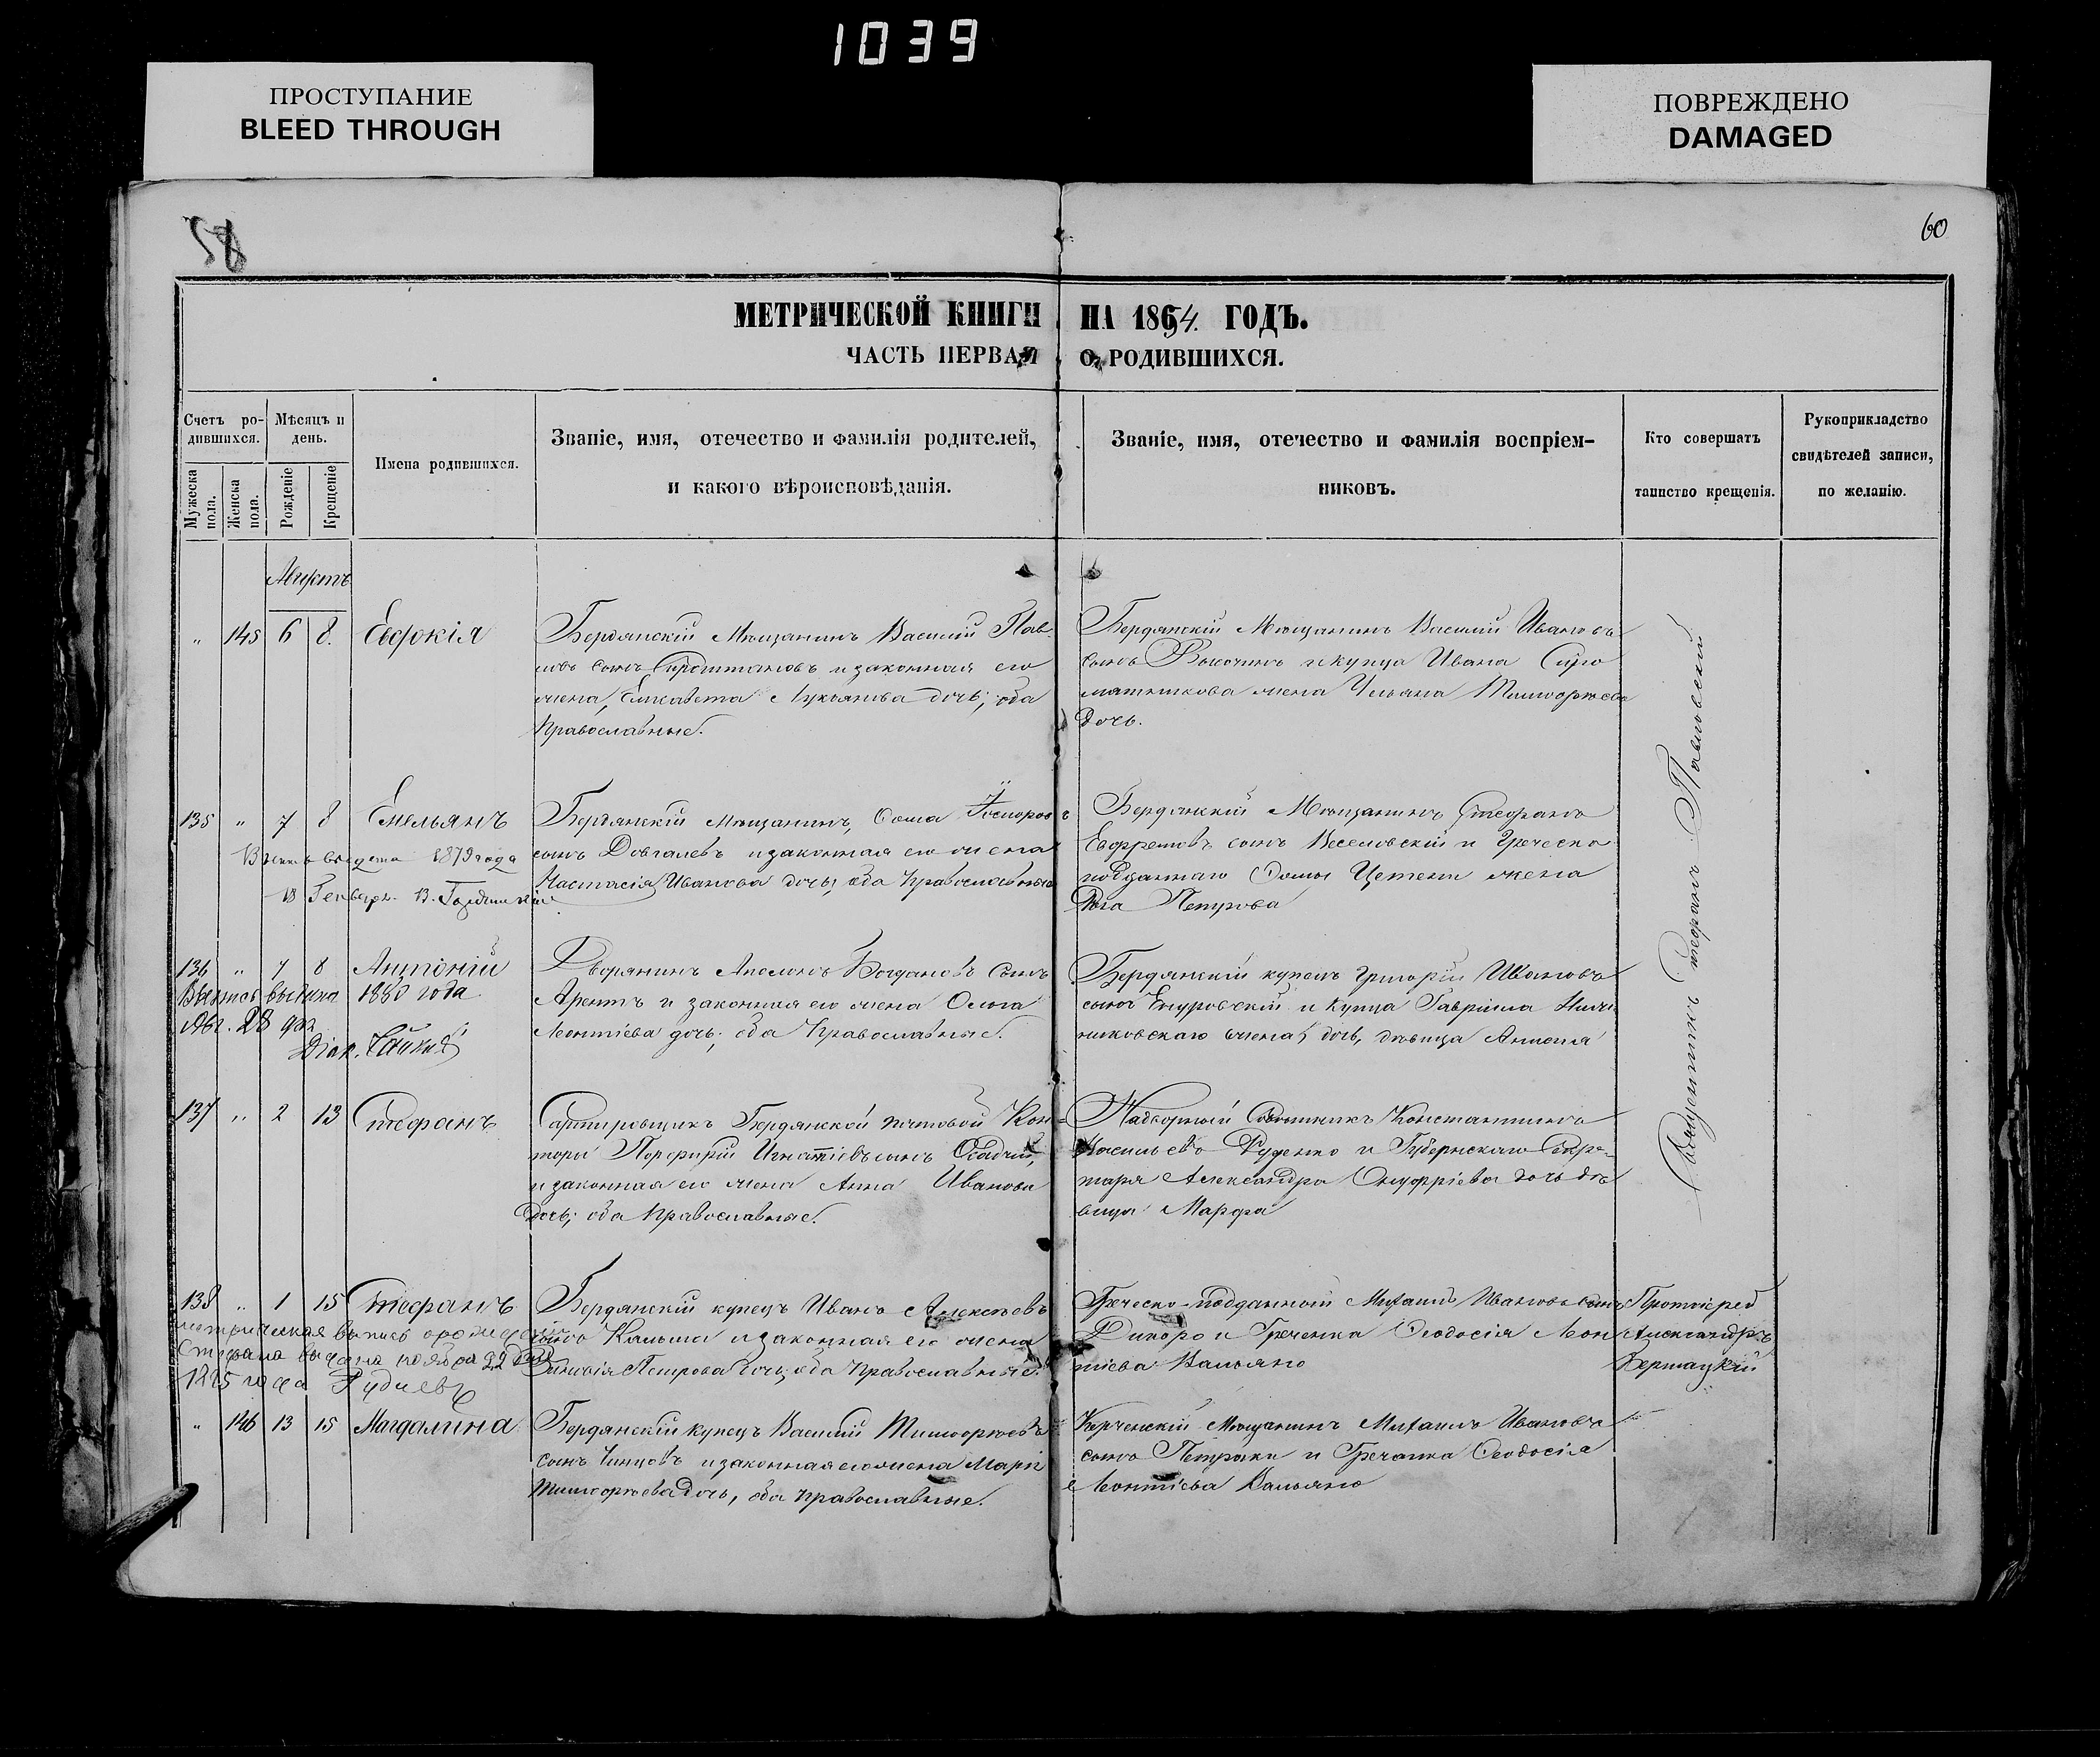 1039
ПРОСТУПАНИЕ
BLEED THROUGH
ПОВРЕЖДЕНО
DAMAGED
58
60
МЕТРИЧЕСКОЙ КНИГИ НА 1864. ГОДЪ.
ЧАСТЬ ПЕРВАЯ О РОДИВШИХСЯ.
Счетъ ро-
дившихся.
Мужеска пола.
Женска пола.
Мѣсяцъ и
день.
Рожденіе
Крещеніе
Имена родившихся.
Званіе, имя, отечество и фамилія родителей,
и какого вѣроисповѣданія.
Званіе, имя, отечество и фамилія воспріем-
никовъ.
Кто совершатъ
таинство крещенія.
Рукоприкладство
свидѣтелей записи,
по желанію.
Мартъ
" 145 6 8. Евдокія
Бердянскій Мѣщанинъ Василій Пав-
ловъ сынъ и законная его
жена, Елисавета Лукьянова дочь; оба
Православные.
Бердянскій Мѣщанинъ Василій Ивановъ
сынъ и купца Ивана Сыро
мятникова жена Ульяна Тимофѣева
дочь.
135 " 7 8 Емельянъ
1879 года
18 Генваря. В.
Бердянскій Мѣщанинъ, Ѳома
сынъ Довгалевъ и законная его жена
Настасія Иванова дочь, оба Православные
Бердянскій Мѣщанинъ Стефанъ
Евфремовъ сынъ Веселовскій и Греческо
подданнаго Ѳомы жена
Петрова
136 " 7 8 Антоній
Выпись выдана 1880 года
Авг. 28 дня
Діак.
Дворянинъ Богдановъ сынъ
Арентъ и законная его жена Ольга
Леонтіева дочь, оба Православные.
Бердянскій купецъ Григорій Ивановъ
сынъ и купца Гавріила
дочь, дѣвица
137 " 2 13 Стефанъ
Сортировщикъ Бердянской почтовой Кон-
торы Порфирій Игнатіевъ сынъ Осадчій,
и законная его жена Анна Иванова
дочь; оба Православные.
Надворный Совѣтникъ Константинъ
Васильевъ Руденко и Губернскаго Секре-
таря Александра Онуфріева дочь дѣ
вица Марфа
Священникъ Стефанъ Павловскій
138 " 1 15 Стефанъ
метрическая выпись о рожденіи
Стефана выдана ноября 22 дня
1875 года Рудневъ
Бердянскій купецъ Иванъ Алексѣевъ
сынъ и законная его жена
Петрова дочь, оба Православные.
Греческо-подданный Михаилъ Ивановъ сынъ
и Гречанка Ѳеодосія Леон
тіева Вальяно
Протоіерей
Александръ
" 146 13 15 Магдалина
Бердянскій купецъ Василій Тимофѣевъ
сынъ и законная его жена Марія
Тимофѣева дочь, оба православные.
Керченскій Мѣщанинъ Михаилъ Ивановъ
сынъ и Гречанка Ѳеодосія
Леонтіева Вальяно